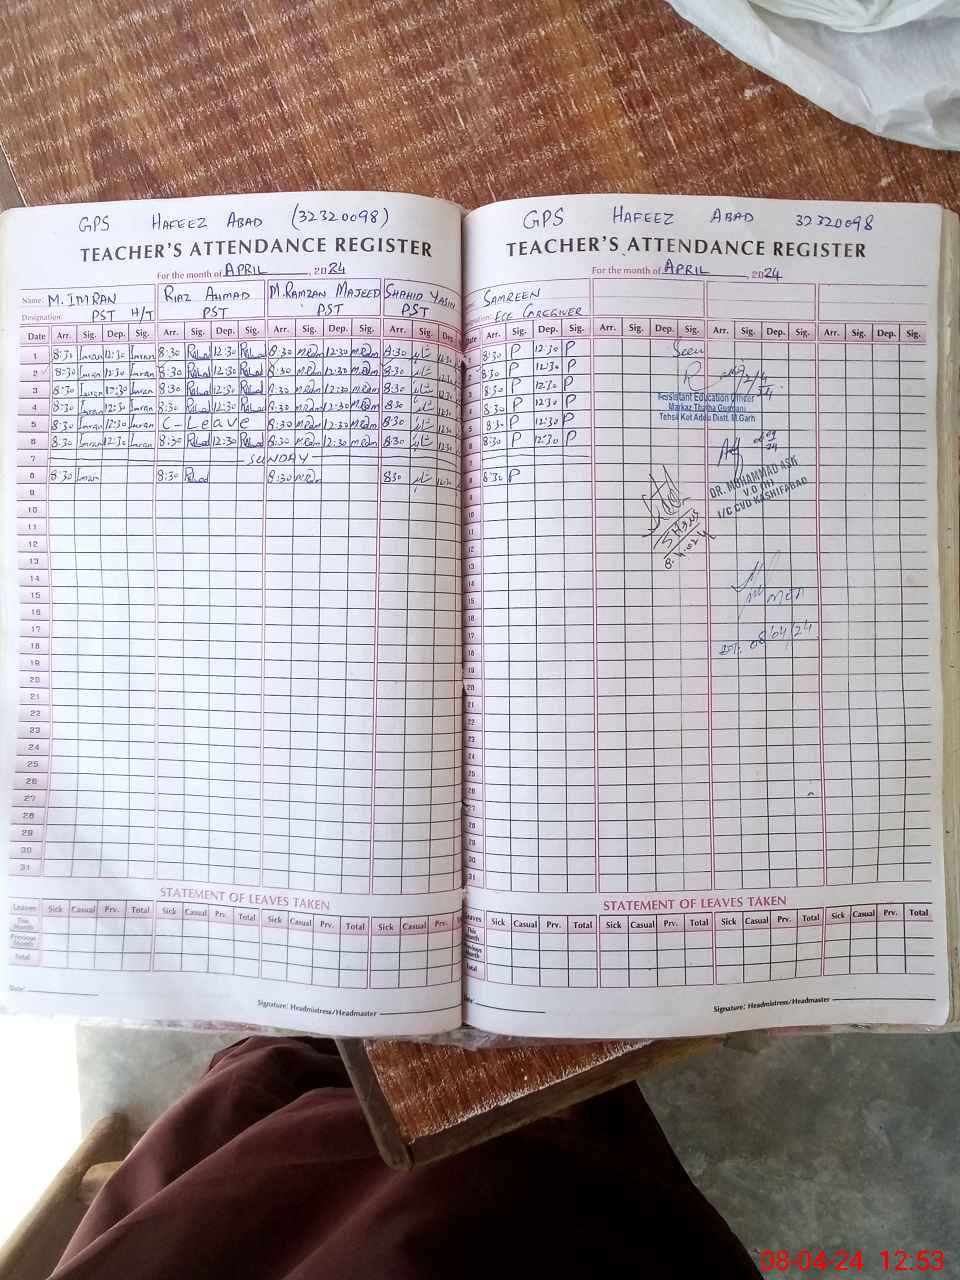 GPS HAFEEZ ABAD (32320098)
TEACHER'S ATTENDANCE REGISTER
For the month of APRIL, 2024
Name: M. IMRAN RIAZ AHMAD M. RAMZAN MAJEED SHAHID YASIN
Designation: PST H/T PST PST PST
Date Arr. Sig. Dep. Sig. Arr. Sig. Dep. Sig. Arr. Sig. Dep. Sig. Arr. Sig. Dep.
1 8:30 Imran 12:30 Imran 8:30 12:30 8:30 12:30 8:30 12:30
2 8:30 Imran 12:30 Imran 8:30 12:30 8:30 12:30 8:30 12:30
3 8:30 Imran 12:30 Imran 8:30 12:30 8:30 12:30 8:30 12:30
4 8:30 Imran 12:30 Imran 8:30 12:30 8:30 12:30 8:30 12:30
5 8:30 Imran 12:30 Imran C-Leave 8:30 12:30 8:30 12:30
6 8:30 Imran 12:30 Imran 8:30 12:30 8:30 12:30 8:30 12:30
7 SUNDAY
8 8:30 Imran 8:30 8:30 8:30 12:30
9
10
11
12
13
14
15
16
17
18
19
20
21
22
23
24
25
26
27
28
29
30
31
STATEMENT OF LEAVES TAKEN
Leaves Sick Casual Prv. Total Sick Casual Prv. Total Sick Casual Prv. Total Sick Casual Prv.
This Month
Previous Month
Total
Date:
Signature: Headmistress/Headmaster
GPS HAFEEZ ABAD 32320098
TEACHER'S ATTENDANCE REGISTER
For the month of APRIL, 2024
SAMREEN
ECE CAREGIVER
Arr. Sig. Dep. Sig. Arr. Sig. Dep. Sig. Arr. Sig. Dep. Sig. Arr. Sig. Dep. Sig.
8:30 P 12:30 P
8:30 P 12:30 P
8:30 P 12:30 P
8:30 P 12:30 P
8:30 P 12:30 P
8:30 P 12:30 P
8:30 P
Seen
Assistant Education Officer
Markaz Thatha Gurmani
Tehsil Kot Addu Distt. M.Garh
DR. MUHAMMAD ASIF
V.O (H)
I/C CVD KASHIFABAD
08/04/24
9
10
11
12
13
14
15
16
17
18
19
20
21
22
23
24
25
26
27
28
29
30
31
STATEMENT OF LEAVES TAKEN
Leaves Sick Casual Prv. Total Sick Casual Prv. Total Sick Casual Prv. Total Sick Casual Prv. Total
This Month
Previous Month
Total
Date:
Signature: Headmistress/Headmaster
08-04-24 12:53